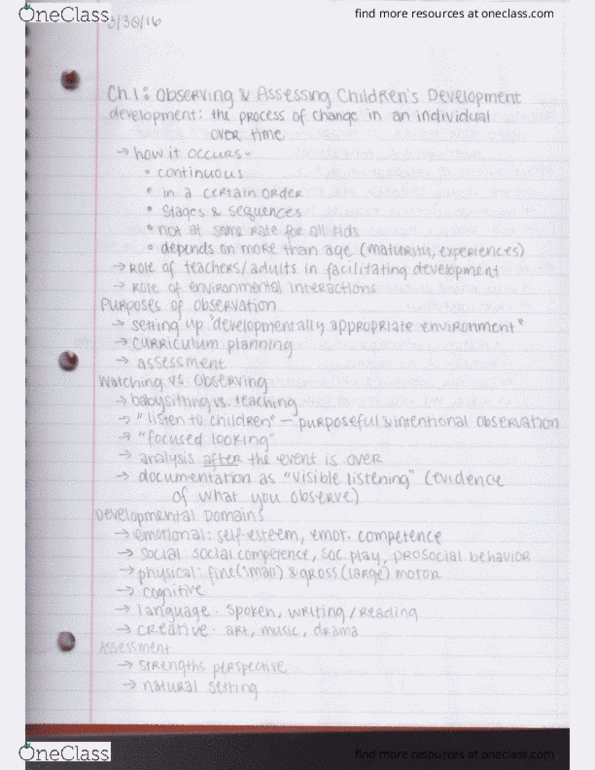 OneClass
find more resources at oneclass.com
3/30/16
Ch.1: Observing & Assessing Children's Development
development: the process of change in an individual
over time
→ how it occurs-
• continuous
• in a certain order
• stages & sequences
• not at same rate for all kids
• depends on more than age (maturity, experiences)
→ role of teachers/adults in facilitating development
→ role of environmental interactions
Purposes of observation
→ setting up "developmentally appropriate environment"
→ curriculum planning
→ assessment
Watching vs. Observing
→ babysitting vs. teaching
→ "listen to children" — purposeful & intentional observation
→ "focused looking"
→ analysis after the event is over
→ documentation as "visible listening" (evidence
of what you observe)
Developmental Domains
→ emotional: self-esteem, emot. competence
→ social: social competence, soc. play, prosocial behavior
→ physical: fine (small) & gross (large) motor
→ cognitive
→ language: spoken, writing/reading
→ creative: art, music, drama
Assessment
→ strengths perspective
→ natural setting
OneClass
find more resources at oneclass.com